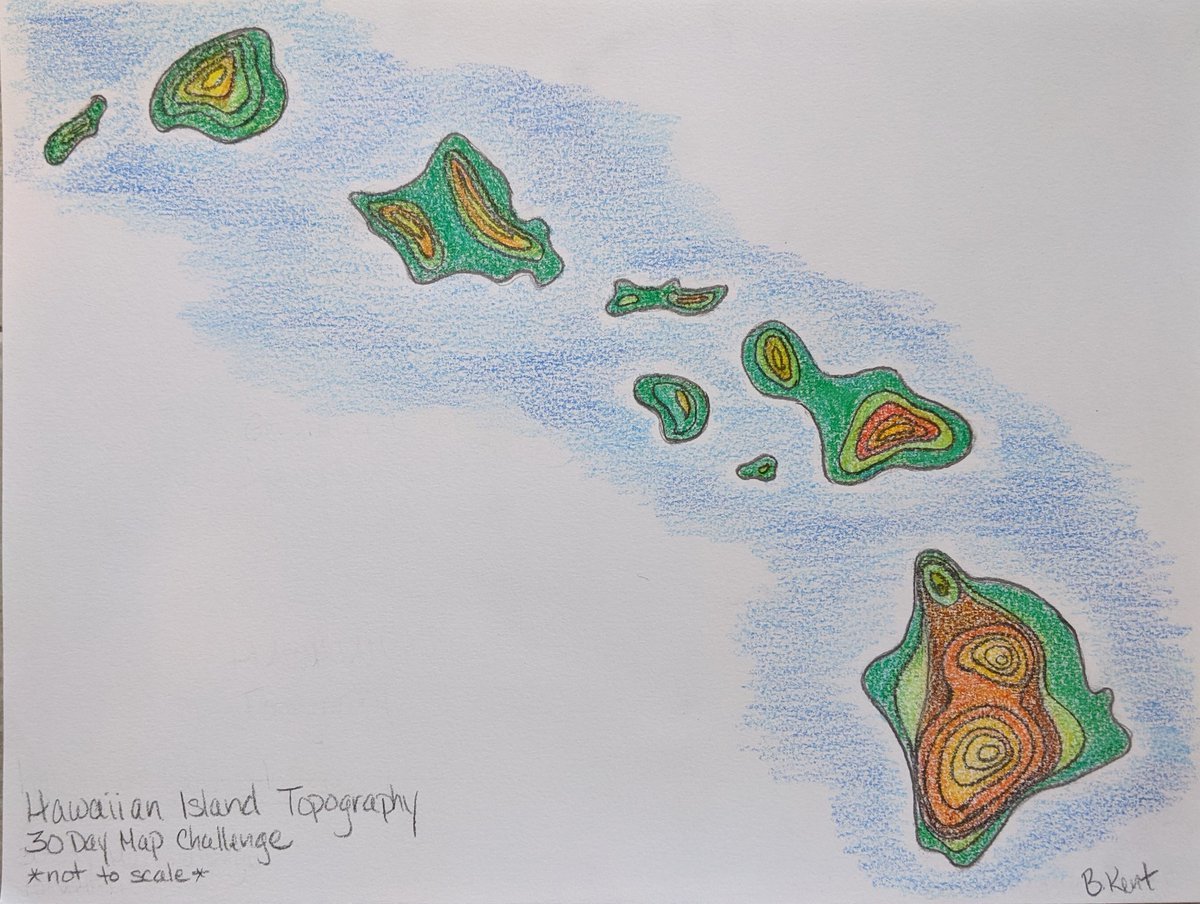 Hawaiian Island Topography
30 Day Map Challenge
*not to scale*
B. Kent